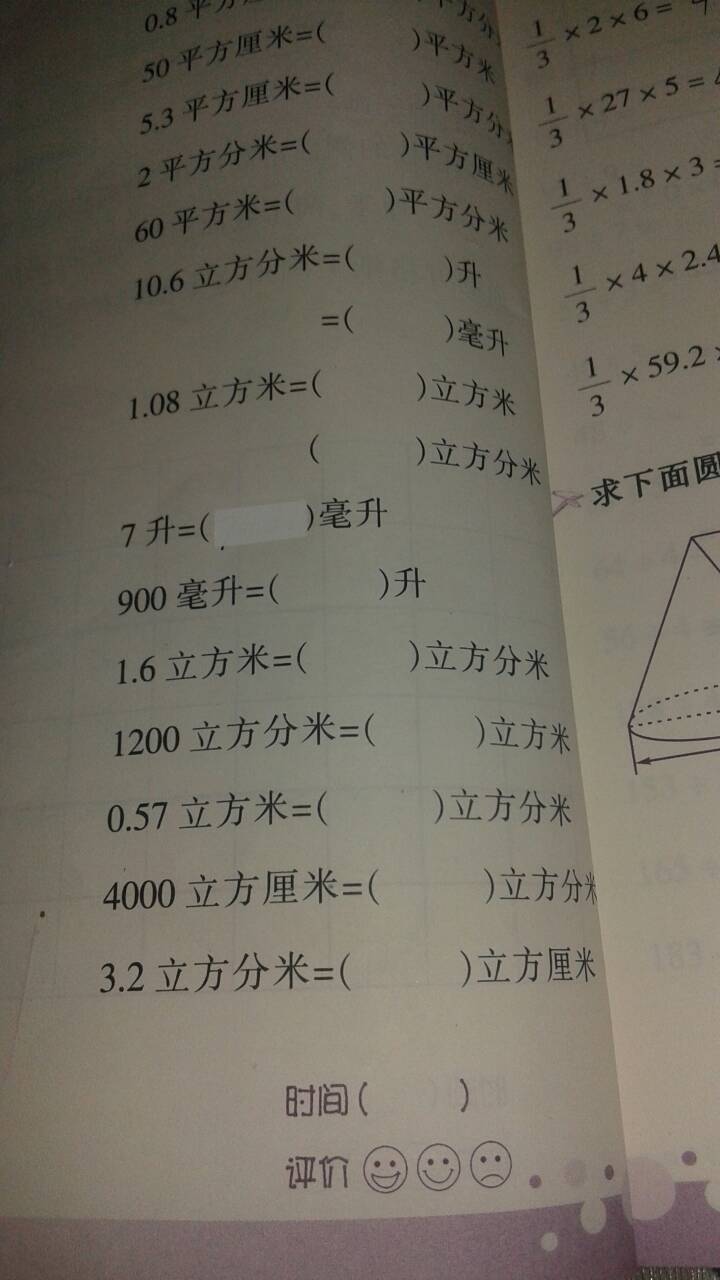 0.8 平方
50 平方厘米=( )平方米
5.3 平方厘米=( )平方分
2 平方分米=( )平方厘米
60 平方米=( )平方分米
10.6 立方分米=( )升
=( )毫升
1.08 立方米=( )立方米
( )立方分米
7 升=( )毫升
900 毫升=( )升
1.6 立方米=( )立方分米
1200 立方分米=( )立方米
0.57 立方米=( )立方分米
4000 立方厘米=( )立方分米
3.2 立方分米=( )立方厘米
时间( )
评价
1/3 ×2×6=
1/3 ×27×5=
1/3 ×1.8×3=
1/3 ×4×2.4
1/3 ×59.2
求下面圆